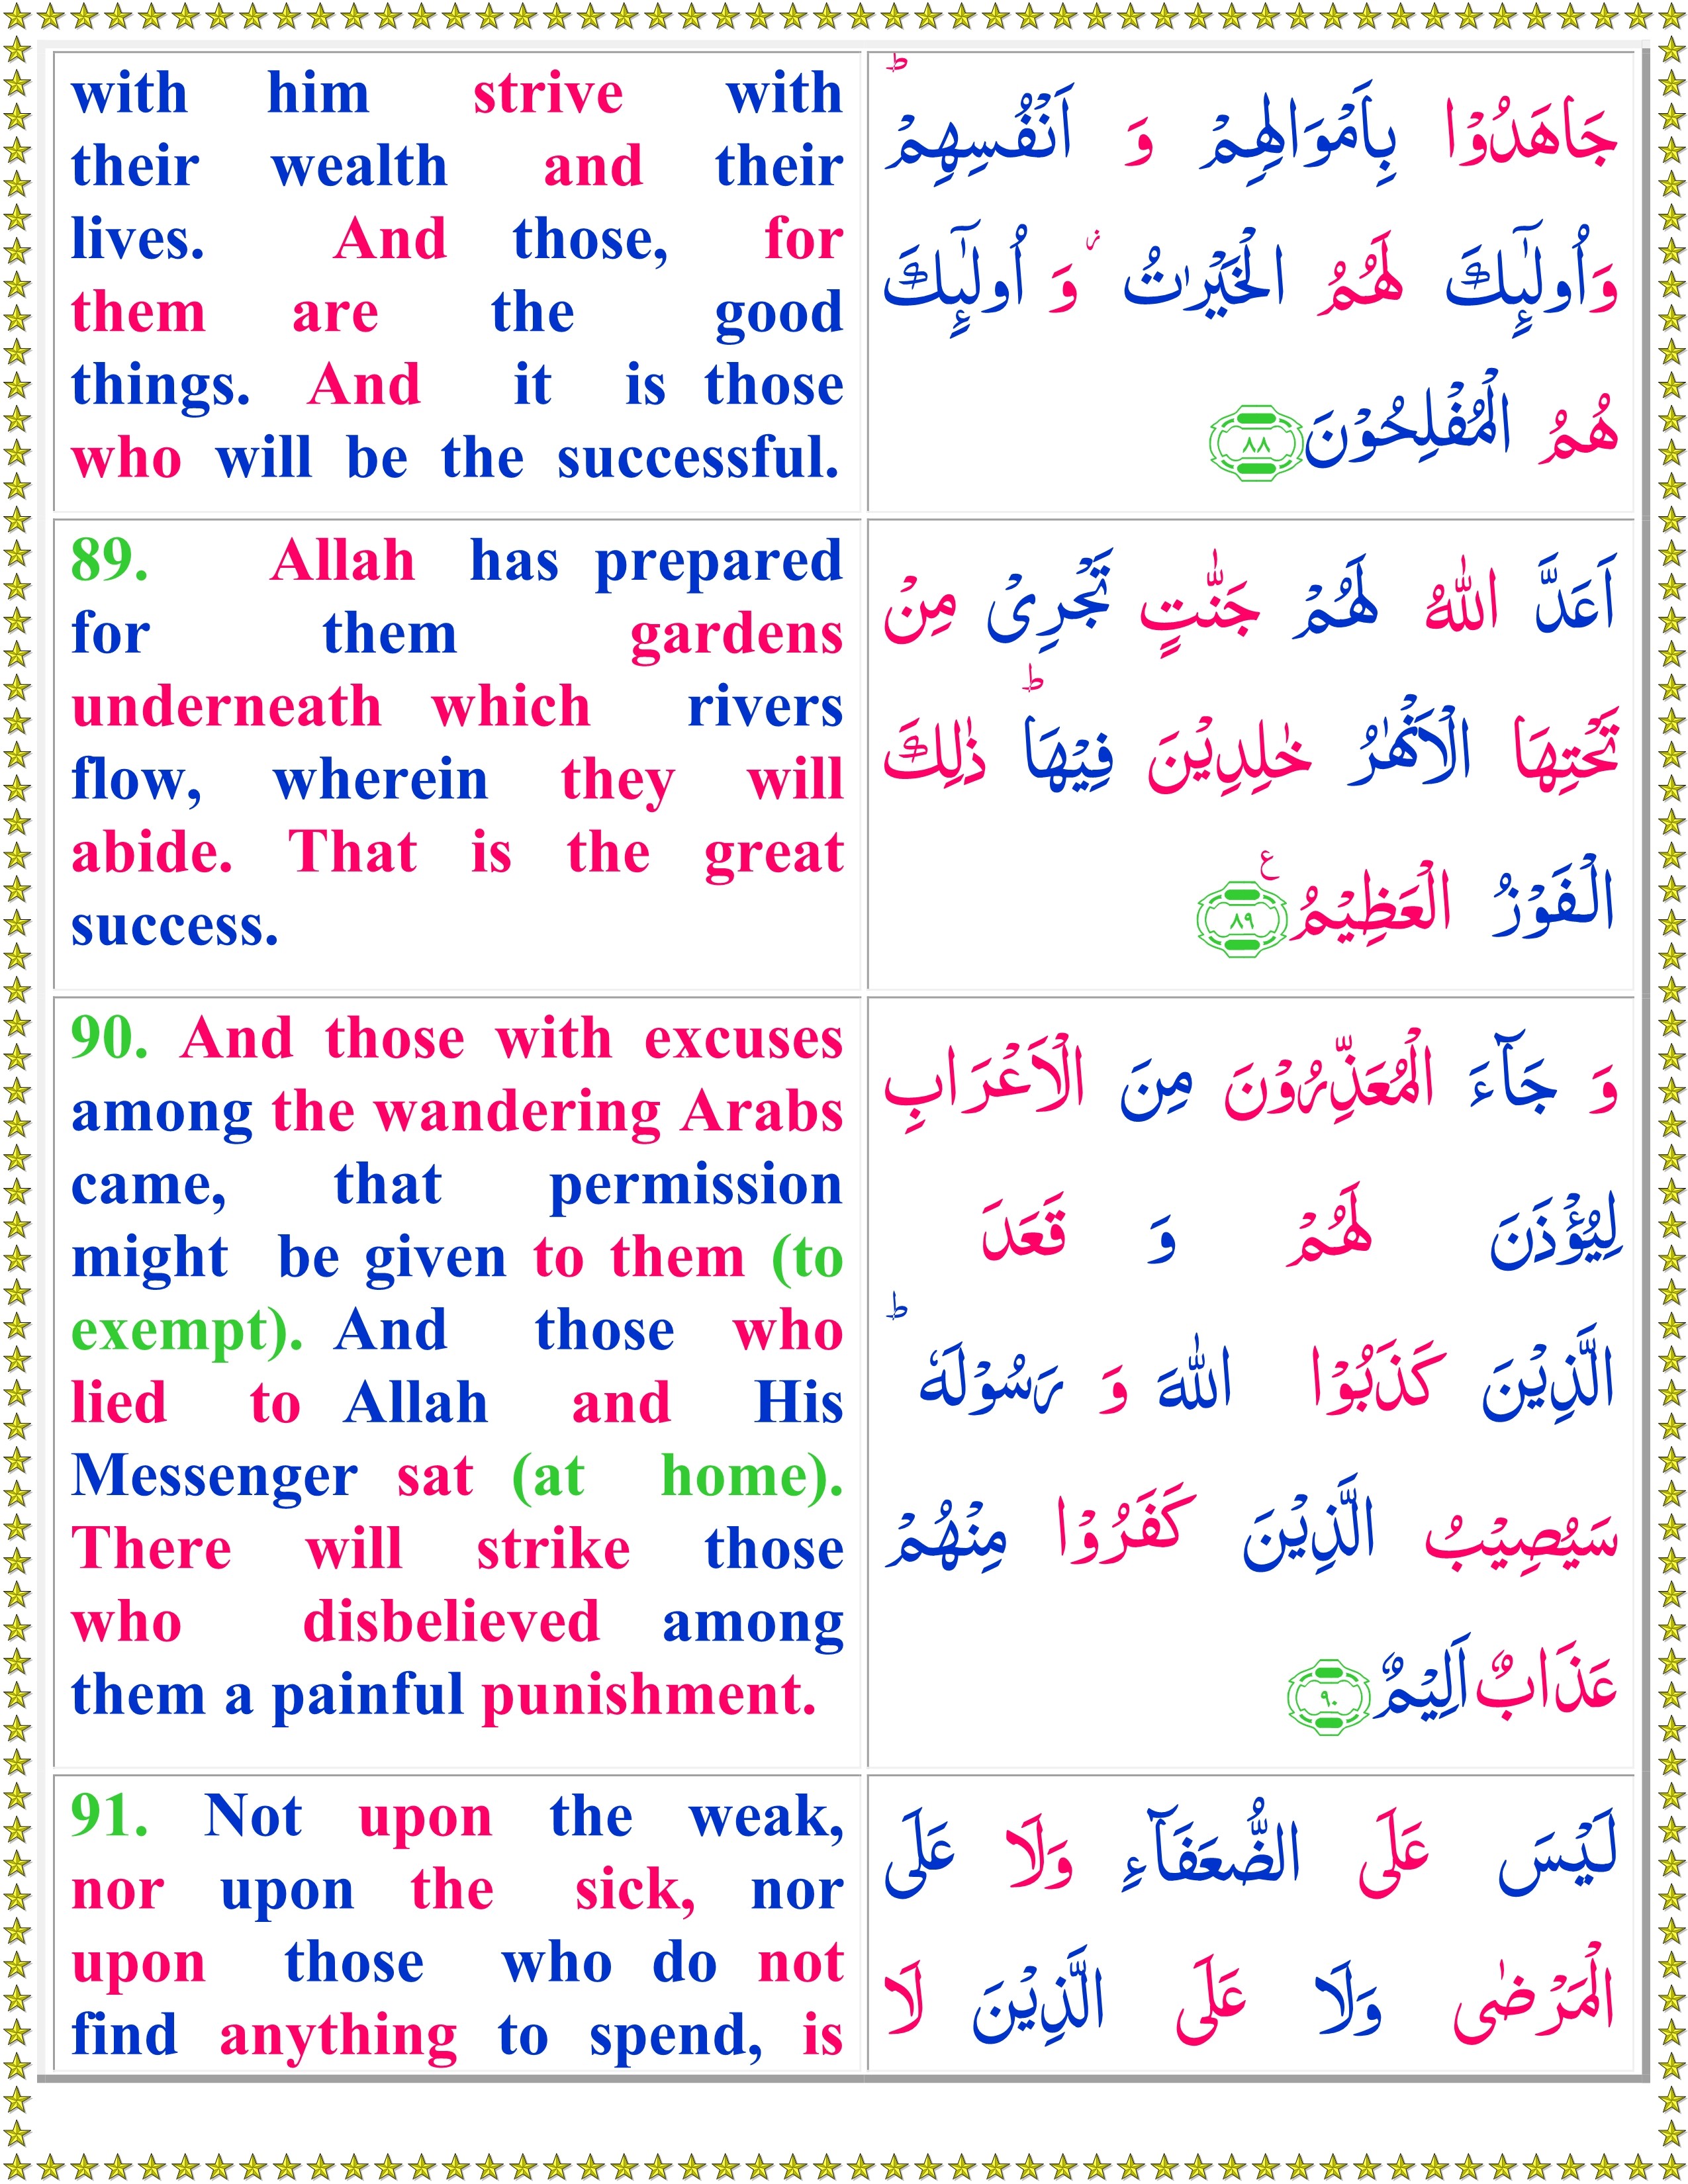 with him strive with
their wealth and their
lives. And those, for
them are the good
things. And it is those
who will be the successful.
جَاهَدُوْا بِاَمْوَالِهِمْ وَ اَنْفُسِهِمْ ؕ
وَاُولٰٓىِٕكَ لَهُمُ الْخَيْرٰتُ ؗ وَ اُولٰٓىِٕكَ
هُمُ الْمُفْلِحُوْنَ ٨٨
89. Allah has prepared
for them gardens
underneath which rivers
flow, wherein they will
abide. That is the great
success.
اَعَدَّ اللّٰهُ لَهُمْ جَنّٰتٍ تَجْرِىْ مِنْ
تَحْتِهَا الْاَنْهٰرُ خٰلِدِيْنَ فِيْهَا ؕ ذٰلِكَ
الْفَوْزُ الْعَظِيْمُ ۧ ٨٩
90. And those with excuses
among the wandering Arabs
came, that permission
might be given to them (to
exempt). And those who
lied to Allah and His
Messenger sat (at home).
There will strike those
who disbelieved among
them a painful punishment.
وَ جَآءَ الْمُعَذِّرُوْنَ مِنَ الْاَعْرَابِ
لِيُؤْذَنَ لَهُمْ وَ قَعَدَ
الَّذِيْنَ كَذَبُوْا اللّٰهَ وَ رَسُوْلَهٗ ؕ
سَيُصِيْبُ الَّذِيْنَ كَفَرُوْا مِنْهُمْ
عَذَابٌ اَلِيْمٌ ٩٠
91. Not upon the weak,
nor upon the sick, nor
upon those who do not
find anything to spend, is
لَيْسَ عَلَى الضُّعَفَآءِ وَلَا عَلَى
الْمَرْضٰى وَلَا عَلَى الَّذِيْنَ لَا